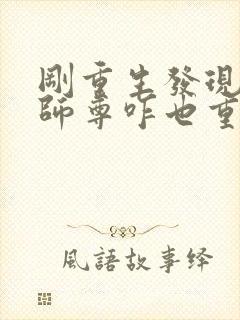 剛重生發現
師尊咋也重
風語故事绎